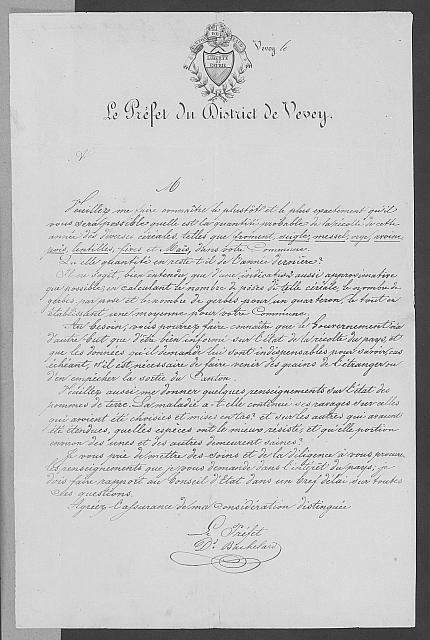 LIBERTÉ
ET
PATRIE
Vevey le
Le Préfet du District de Vevey.
N
M
Veuillez me faire connaître le plustôt et le plus exactement qu'il
vous sera possible quelle est la quantité probable de la récolte de cette
année des diverses céréales, telles que froment, seigle, messel, orge, avoine,
pois, lentilles, fèves et Maïs, dans votre Commune.
Quelle quantité en reste t-il de l'année dernière?
Il ne s'agit, bien entendu, que d'une indication aussi approximative
que possible, en calculant le nombre de poses de telle céréale, le nombre de
gerbes par pose et le nombre de gerbes pour un quarteron, le tout en
établissant une moyenne pour votre Commune.
Au besoin, vous pourrez faire connaître que le Gouvernement n'a
d'autre but que d'être bien informé sur l'état de la récolte du pays, et
que les données qu'il demande lui sont indispensables pour savoir, cas
échéant, s'il est nécessaire de faire venir des grains de l'étranger ou
d'en empêcher la sortie du Canton.
Veuillez aussi me donner quelques renseignements sur l'état des
pommes de terre. La maladie a t-elle continué ses ravages sur celles
qui avoient été choisies et mises en tas? et sur les autres qui avaient
été étendues, quelles espèces ont le mieux résisté, et quelle portion
environ des unes et des autres demeurent saines?
Je vous prie de mettre des soins et de la diligence à vous procurer
les renseignements que je vous demande dans l'intérêt du pays; je
dois faire rapport au Conseil d'Etat dans un bref délai sur toutes
ces questions.
Agréez l'assurance de ma considération distinguée
Le Préfet
Dr Bachelard